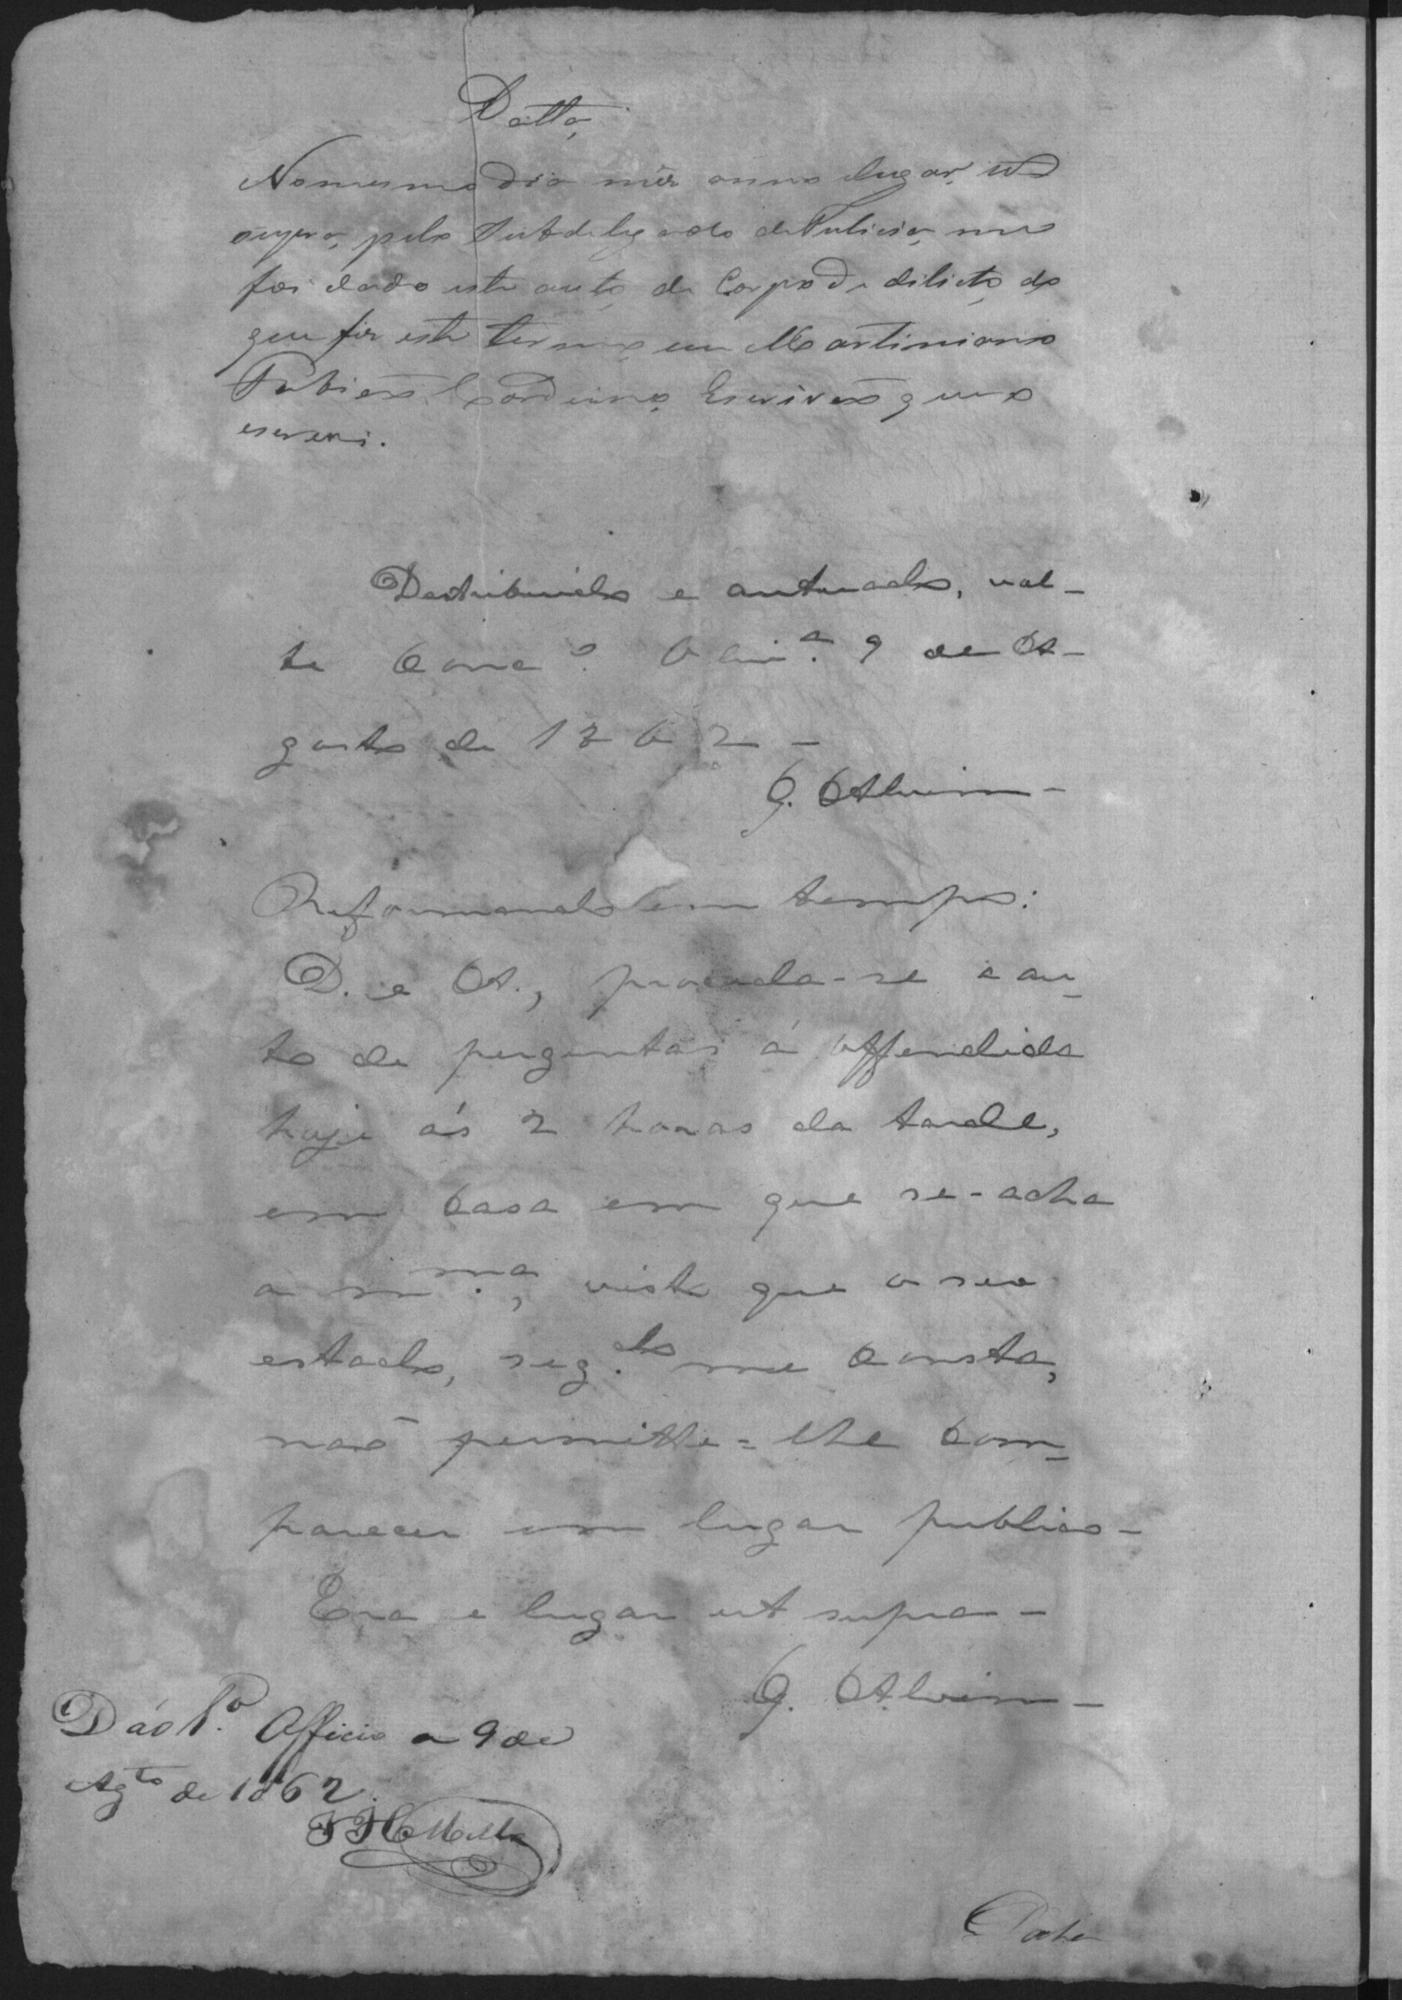 Datta,
No mesmo dia mês anno lugar, ut
supra, pelo Subdelegado de Policia, me
foi dado este auto de Corpo de delicto, do
que fiz este termo eu Martiniano
Escrivaõ que o
escrevi.
Destribuido e autuado, vol-
te Conc.º 9 de A-
gosto de 1862 -
G. Alvim -
Reformando em tempo:
D. e A., proceda-se a au-
to de perguntas á offendida
hoje ás 2 horas da tarde,
em casa em que se-acha
a m.ma, visto que o seo
estado, seg.do me consta,
naõ permitte-lhe com-
parecer em lugar publico -
Era e lugar ut supra -
G. Alvim -
D. ao 1.º Officio a 9 de
Ag.to de 1862.
Mello